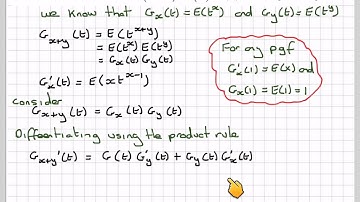 we know that Gx(t)=E(t^x) and Gy(t)=E(t^y)
Gx+y(t) = E(t^x+y)
= E(t^x)E(t^y)
= Gx(t) Gy(t)
G'x(t) = E(xt^x-1)
For any pgf
G'x(1) = E(x) and
Gx(1) = E(1) = 1
Consider
Gx+y(t) = Gx(t) Gy(t)
Differentiating using the product rule
Gx+y'(t) = G(t) G'y(t) + Gy(t) G'x(t)